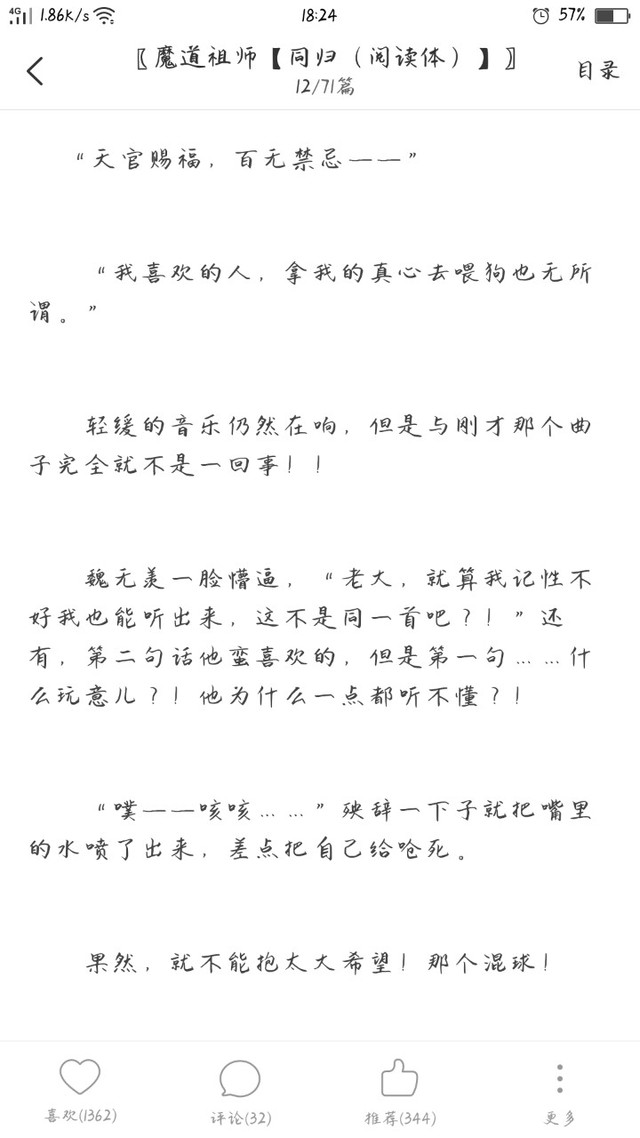 4G 1.86K/s 18:24 57%
〖魔道祖师【同归（阅读体）】〗
12/71篇
目录
“天官赐福，百无禁忌——”
“我喜欢的人，拿我的真心去喂狗也无所
谓。”
轻缓的音乐仍然在响，但是与刚才那个曲
子完全就不是一回事！！
魏无羡一脸懵逼，“老大，就算我记性不
好我也能听出来，这不是同一首吧？！”还
有，第二句话他蛮喜欢的，但是第一句……什
么玩意儿？！他为什么一点都听不懂？！
“噗——咳咳……”殃辞一下子就把嘴里
的水喷了出来，差点把自己给呛死。
果然，就不能抱太大希望！那个混球！
喜欢(1362)
评论(32)
推荐(344)
更多